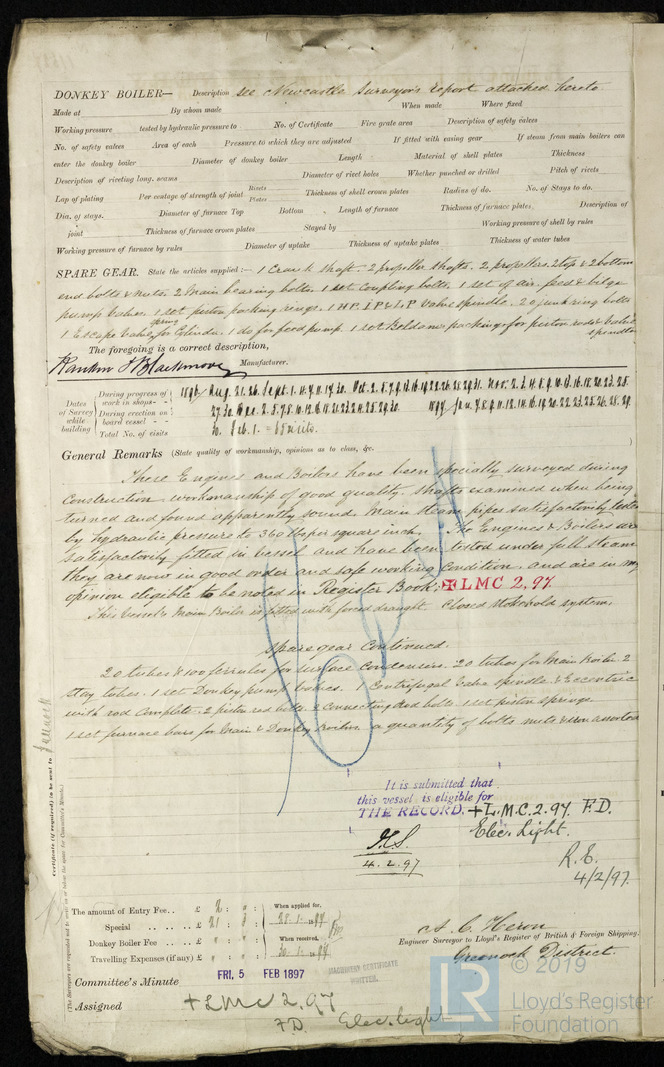 DONKEY BOILER— Description see Newcastle Surveyor's report attached hereto
Made at By whom made When made Where fixed
Working pressure tested by hydraulic pressure to No. of Certificate Fire grate area Description of safety valves
No. of safety valves Area of each Pressure to which they are adjusted If fitted with easing gear If steam from main boilers can
enter the donkey boiler Diameter of donkey boiler Length Material of shell plates Thickness
Description of riveting long. seams Diameter of rivet holes Whether punched or drilled Pitch of rivets
Lap of plating Per centage of strength of joint Rivets Plates Thickness of shell crown plates Radius of do. No. of Stays to do.
Dia. of stays. Diameter of furnace Top Bottom Length of furnace Thickness of furnace plates Description of
joint Thickness of furnace crown plates Stayed by Working pressure of shell by rules
Working pressure of furnace by rules Diameter of uptake Thickness of uptake plates Thickness of water tubes
SPARE GEAR. State the articles supplied:— 1 Crank shaft. 2 propeller shafts. 2 propellers. 2 top & 2 bottom
end bolts & nuts. 2 Main bearing bolts. 1 set Coupling bolts. 1 set of air, feed & bilge
pump valves. 1 set piston packing rings. 1 H.P. I.P & L.P Valve spindle. 20 junk ring bolts
1 Escape valve spring for Cylinder. 1 do for feed pump. 1 set Beldams packings for piston rods & valve
spindles
The foregoing is a correct description,
Rankin & Blackmore Manufacturer.
Dates of Survey while building
During progress of work in shops - - 1896 Aug. 21. 26. Sept. 1.
During erection on board vessel - - - 1897 Jan.
Total No. of visits Feb. 1. = visits.
General Remarks (State quality of workmanship, opinions as to class, &c.
These Engines and Boilers have been specially surveyed during
construction, workmanship of good quality. Shafts examined when being
turned and found apparently sound. Main steam pipes satisfactorily tested
by hydraulic pressure to 360 lbs per square inch. The Engines & Boilers are
satisfactorily fitted in vessel and have been tested under full steam
they are now in good order and safe working condition, and are in my
opinion eligible to be noted in Register Book. ✠LMC 2,97
This Vessel's Main Boiler is fitted with forced draught Closed Stokehold system.
Spare gear continued.
20 tubes & 100 ferrules for surface condensers. 20 tubes for Main Boiler. 2
stay tubes. 1 set Donkey pump valves. 1 Centrifugal valve spindle & Eccentric
with rod complete. 2 piston rod bolts. 2 Connecting Rod bolts. 1 set piston springs.
1 set furnace bars for Main & Donkey Boilers. a quantity of bolts nuts & iron assorted
Certificate (if required) to be sent to Greenock
(The Surveyors are requested not to write on or below the space for Committee's Minute.)
It is submitted that
this vessel is eligible for
THE RECORD. +L.M.C. 2.97. F.D.
Elec. Light.
4.2.97
R.E.
4/2/97.
The amount of Entry Fee .. £ 2 : When applied for,
Special .. £ 21 : 28.1.1897
Donkey Boiler Fee .. £ When received,
Travelling Expenses (if any) £ 30.1.1897
A. C. Heron
Engineer Surveyor to Lloyd's Register of British & Foreign Shipping.
Greenock District.
Committee's Minute FRI, 5 FEB 1897
MACHINERY CERTIFICATE
WRITTEN.
Assigned + LMC 2,97
F.D. Elec. light
© 2019
LR
Lloyd's Register
Foundation